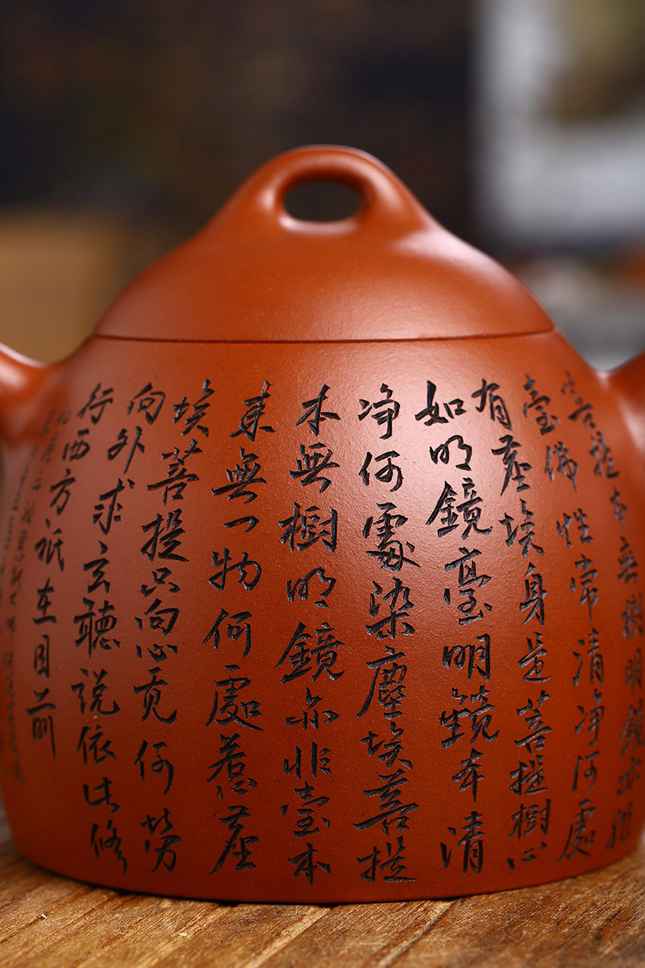 菩提本無樹明鏡亦非
臺佛性常清淨何處
有塵埃身是菩提樹心
如明鏡臺明鏡本清
净何處染塵埃菩提
本無樹明鏡亦非臺本
來無一物何處惹塵
埃菩提只向心覓何勞
向外求玄聽說依此修
行西方祇在目前